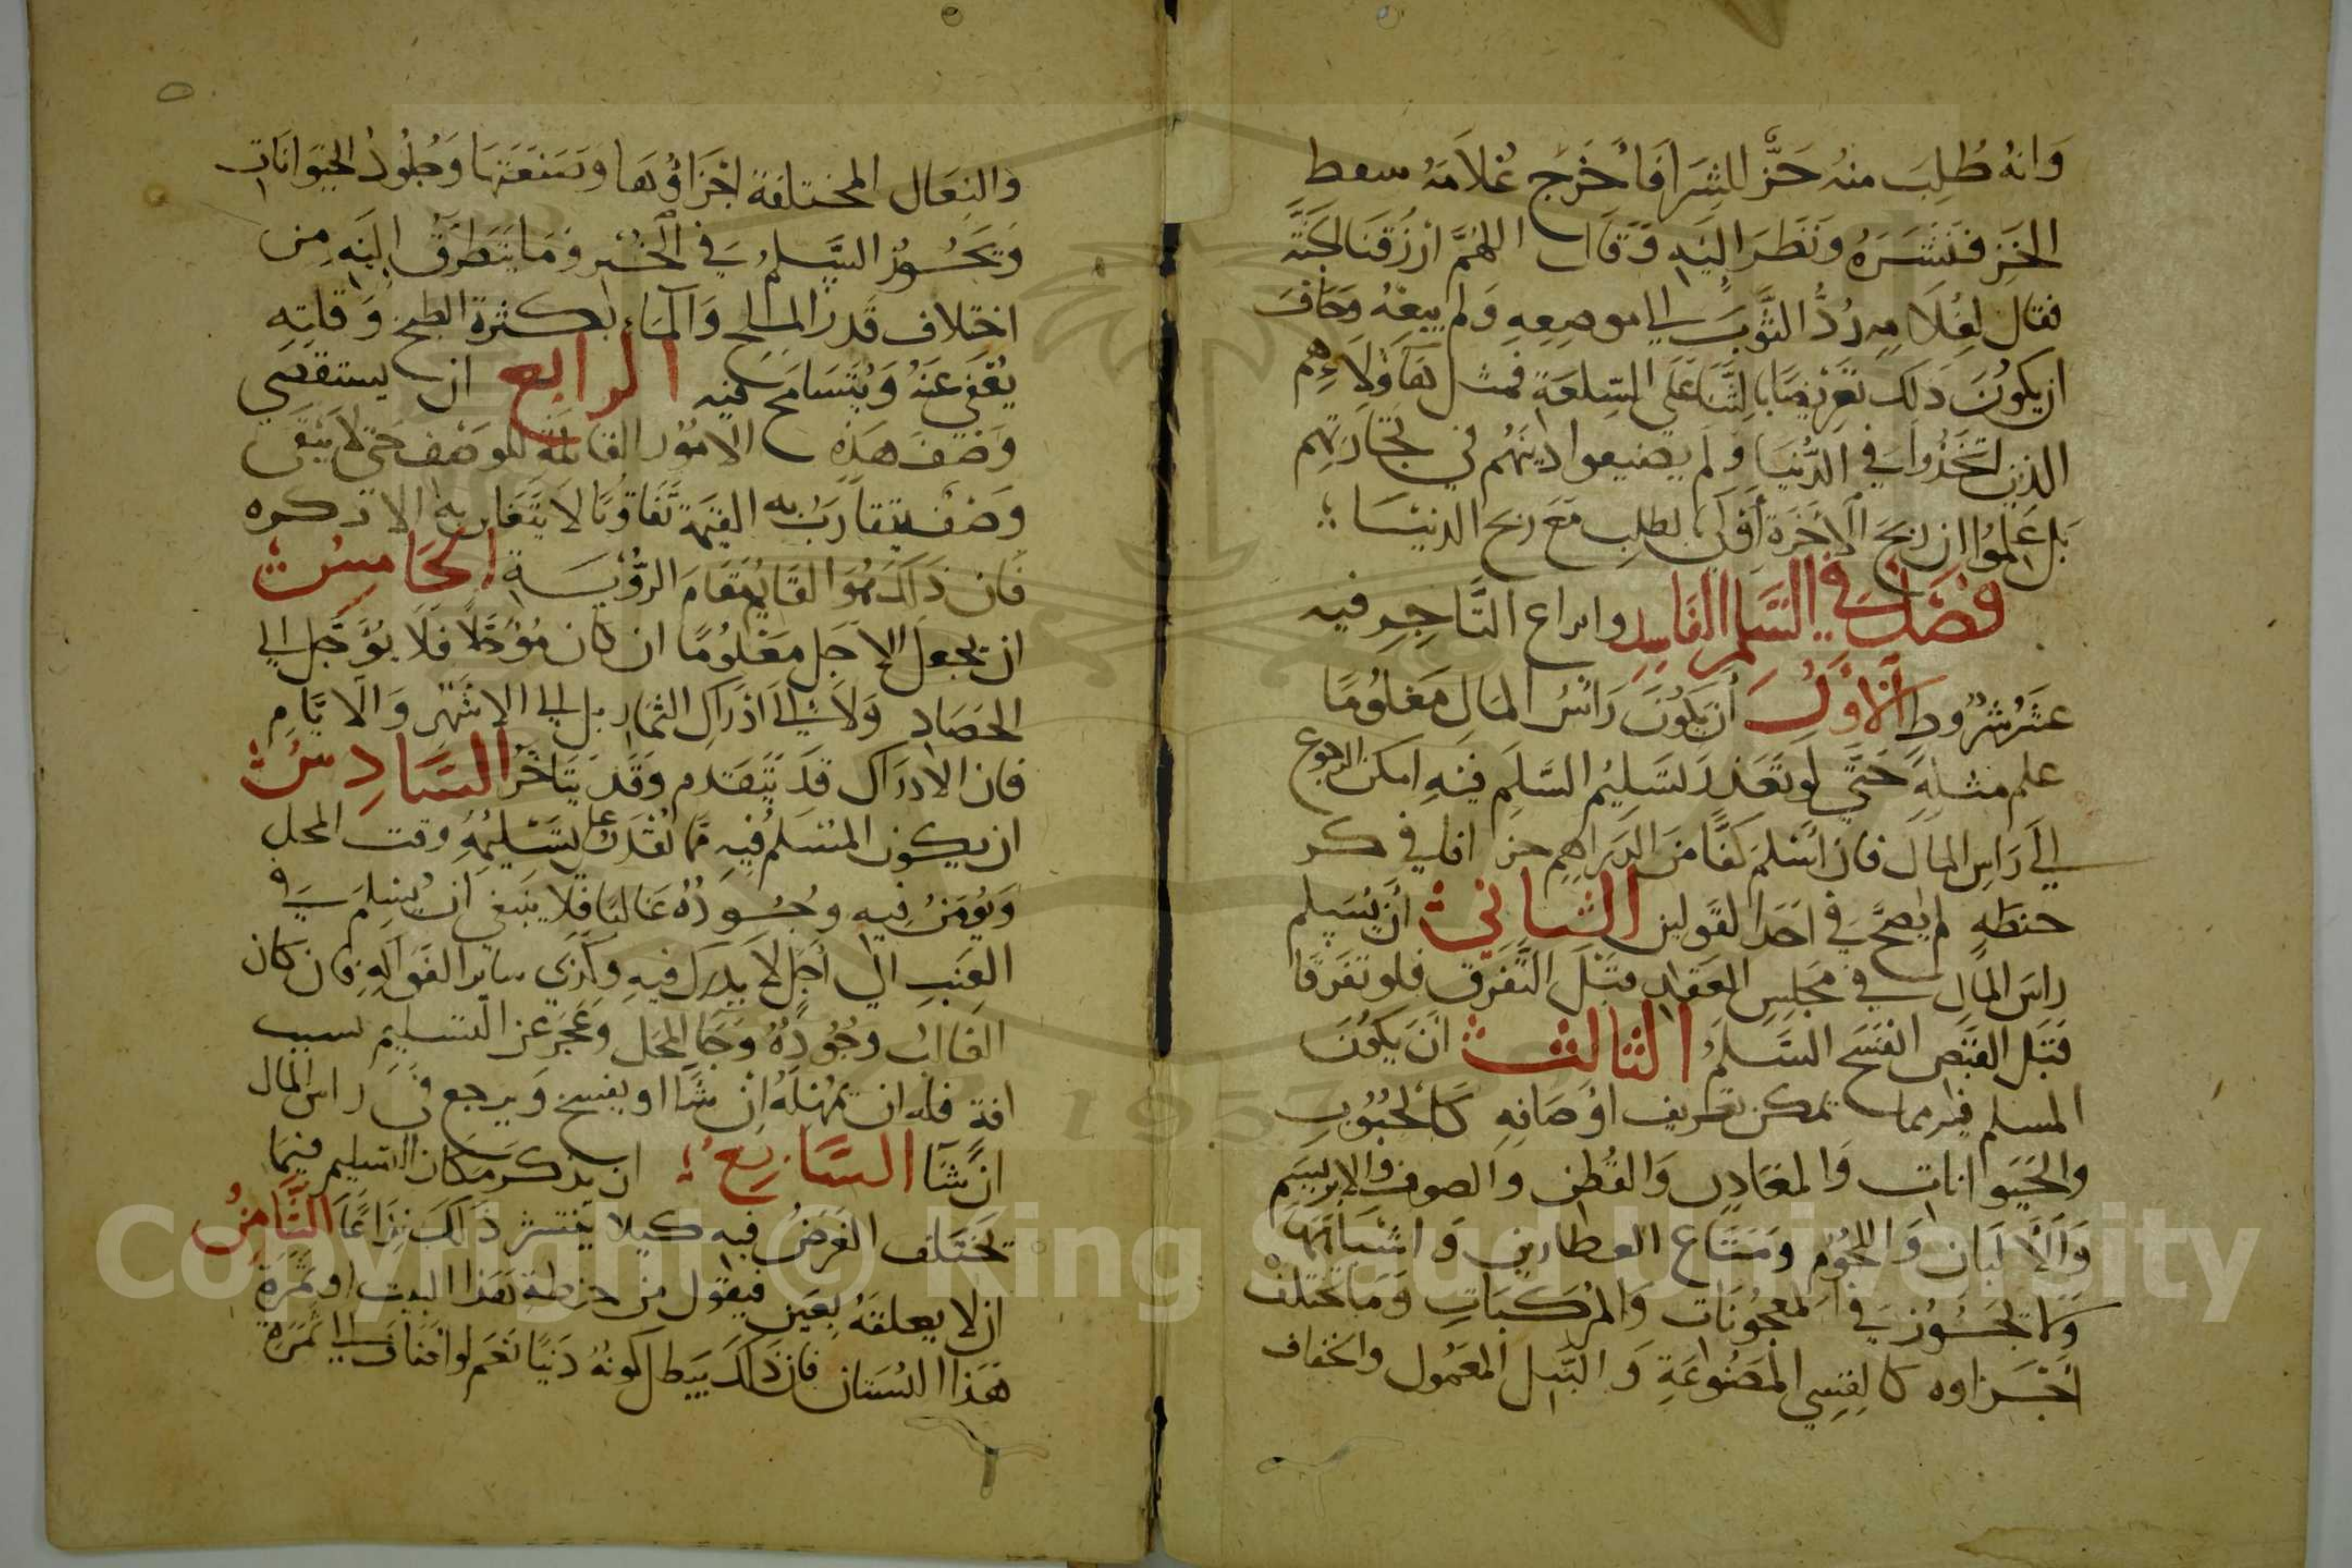 وَانهُ طُلِبَ منهُ خَزٌّ للشِرَا فَأخْرَج غُلامَهُ سفط
الخَزِ فنَشَرَهُ وَنَظَرَ اليَهِ وَقَال اللهُمَّ ارْزُقنَا الجَنَّة
فقال لغُلامِه رُدُّ الثَّوبَ الي موضِعِهِ وَلم يبعْهُ وَخَافَ
ان يكونَ ذلك تعَرِيضًا بالثَّنَا عَلَى السِّلعَةِ فمثل هَاوُلاءِ هم
الذين اتخَذُوا في الدُّنيَا ولم يضيعوا دِينَهُم في تجَارَتهِم
بَل عَلِمُوا ان ربحَ الاخَرَة أوْلَى بالطلبِ مَعَ ربح الدنيَا
فصَل في السَّلَمِ الفَاسِدِ واىراع التَّاجِرِ فيه
عَشَرُ شُرُوطٍ الأوَّلُ أن يَكُونَ رَأسُ المَالِ مَعْلُومًا
علم مثلِهِ حَتَّى لو تَعَذر تَسَلِيمُ السَّلَمِ فيْهِ امكن الرجوع
الَى رَاسِ المَال فان اسْلَمَ كَفًّا مَنَ الدَرَاهِمِ جزافا في كر
حنطَهٍ لم يصحَّ في احَدَ القولين الثَّانِي أن يُسَلم
راسَ المَالِ في مَجلِس العَقدِ قبَلَ التَّفَرقِ فلو تفَرقَا
قَبَلَ القَبَضِ انفسَخَ السَّلَمُ الثالث ان يَكُونَ
المسلم فيه مما يمكن تعريف اوْصَافِهِ كَالحُبُوُبِ
والحَيَوانات وَالمعَادِن وَالقُطن والصوف والابريسَم
وَالألبَان وَاللحُوُم ومَتَاعِ العطارين وَاشبَاهَهَا
وَلا يَجُوُز في المَعجُونَات وَالمُركبَاتِ وَمَا تختلف
اجْزاوه كالقِسِي المَصْنُوعَةِ وَالنَّبل المعَمُول والخفاف
والنعَال المختلفة اجْزَاؤُهَا وَصَنعَتهَا وَجُلُودُ الحَيَوانَات
وَيَجُوزُ السَّلَمُ في الخُبْزِ وَمَا يَتَطَرَّقُ اليَهِ مِن
اختلاف قَدر الملح وَالمَاء بكثرة الطبخ وَقلتِهِ
يُعْفَى عَنهُ وَيُتَسَامَح فيه الرابع ان يستقصي
وَصْفَ هَذِهِ الامُوُر القابلة للوَصْف حتى لا يَبَقى
وَصْف يتقارَبُ به القيَمة تَفَاوُتًا لا يَتَغَابن به الا ذكره
فَان ذَلكَ هُوَ القَايُم مَقَامَ الرُّؤُيَة الخَامِسُ
ان يجعَل الاجَل مَعْلُومًا ان كان مُؤَجَّلاً فَلَا يؤَجَّل الي
الحَصَادِ وَلاَ الَي اذرَاكِ الثمار بل الى الاشهُر وَالايَّامِ
فان الادرَاك قَد يَتَقدم وَقَد يَتَاخَّر السَّادِسُ
ان يكون المُسَلمُ فيْهِ مما يُقْدَر على تَسَلِيمُهِ وقت المحل
وَيُؤمَنُ فِيهِ وجُودُهُ غَالبًا فَلا يَنبَغي أن يُسِلَم في
العِنَبِ الي أجَلٍ لا يدرَك فيهِ وَكَذَي سَاير الفَوَاكِهِ فان كان
الغَالبُ وجُوُدُهُ وَجَا المحَل وَعَجَز عَن التسَليِم لسبب
افة فله ان يمُهلَهُ انْ شَا او يفسخ وَيرجع في راس المال
انْ شَآ السَّابِع ان يذكر مَكان التسَليم فيَما
يَخْتَلف الغَرَضُ فيهِ كيلا يثير ذَلكَ نزَاعًا الثَّامِنُ
ان لا يعلقَهُ بعَين فيَقول من حنطة هَذا البيت او ثمَرَةِ
هَذا البُستان فان ذَلكَ يبَطل كونهُ دَينًا نَعَم لو اضاف الي ثمَرَة